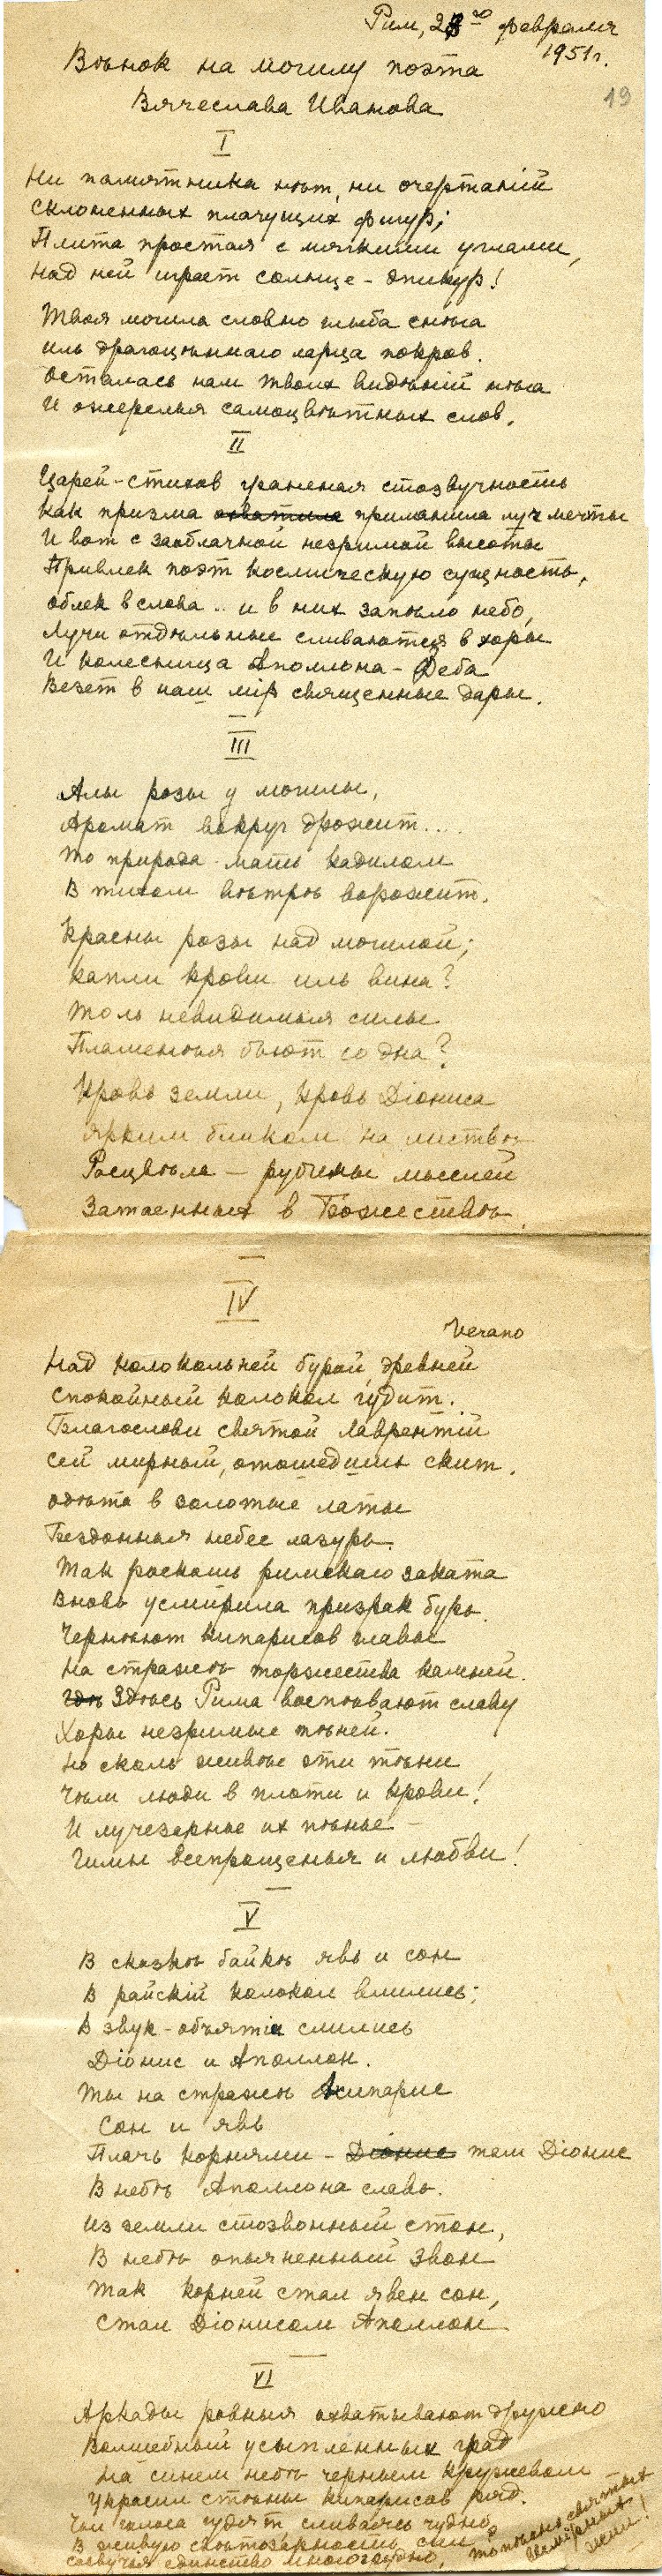 Рим, 28го февраля
1951г.
19
Вѣнок на могилу поэта
Вячеслава Иванова
I
Ни памятника нѣт, ни очертаній
Склоненных плачущих фигур;
Плита простая с мягкими углами,
Над ней играет солнце - эпикур!
Твоя могила словно глыба снѣга
иль драгоцѣннаго ларца покров.
Осталась нам твоих видѣній нѣга
И ожерелья самоцвѣтных слов.
II
Царей-стихов граненая стозвучность
Как призма охватила приманила луч мечты
И вот с заоблачной незримой высоты
Привлек поэт космическую сущность,
облек в слова .. и в них запѣло небо,
Лучи отдѣльные сливаются в хоры
И колесница Аполлона - Феба
Везет в наш мір священные дары.
III
Алы розы у могилы,
Аромат вокруг дрожит....
То природа-мать кадилом
В тихом вѣтрѣ ворожит.
Красны розы над могилой;
Капли крови иль вина?
Толь невидимыя силы
Пламенѣя бьют со дна?
Кровь земли, кровь Діониса
Ярким бликом на листвѣ
Расцвѣла - рубины мыслей
Затаенных в Божествѣ.
IV
Verano
Над колокольней бурой, древней
Спокойный колокол гудит.
Благослови святой Лаврентій
Сей мирный, отошедших скит.
Одѣта в золотые латы
Бездонная небес лазурь.
Так роскошь римскаго заката
Вновь усмирила призрак бурь.
Чернѣют кипарисов главы
На стражѣ торжества камней.
Гдѣ Здѣсь Рима воспѣвают славу
Хоры незримые тѣней.
Но сколь живѣе эти тѣни
Чѣм люди в плоти и крови!
И лучезарное их пѣнье -
Гимн всепрощенья и любви!
V
В сказкѣ байкѣ явь и сон
В райскій колокол влились;
В звук-объятіи слились
Діонис и Аполлон.
Ты на стражѣ кипарис
Сон и явь
Плачь корнями - Діонис там Діонис
В небѣ Аполлона славь.
Из земли стозвонный стон,
В небѣ опьяненный звон
Так корней стал явен сон,
Стал Діонисом Аполлон
VI
Аркады ровныя охватывают дружно
Волшебный усыпленных град
На синем небѣ черным кружевом
Украсил стѣны кипарисов ряд.
Чьи голоса гудят сливаясь чудно
В живую свѣтозарность сил?
Созвучія единство многогодно,
То пѣснь святых